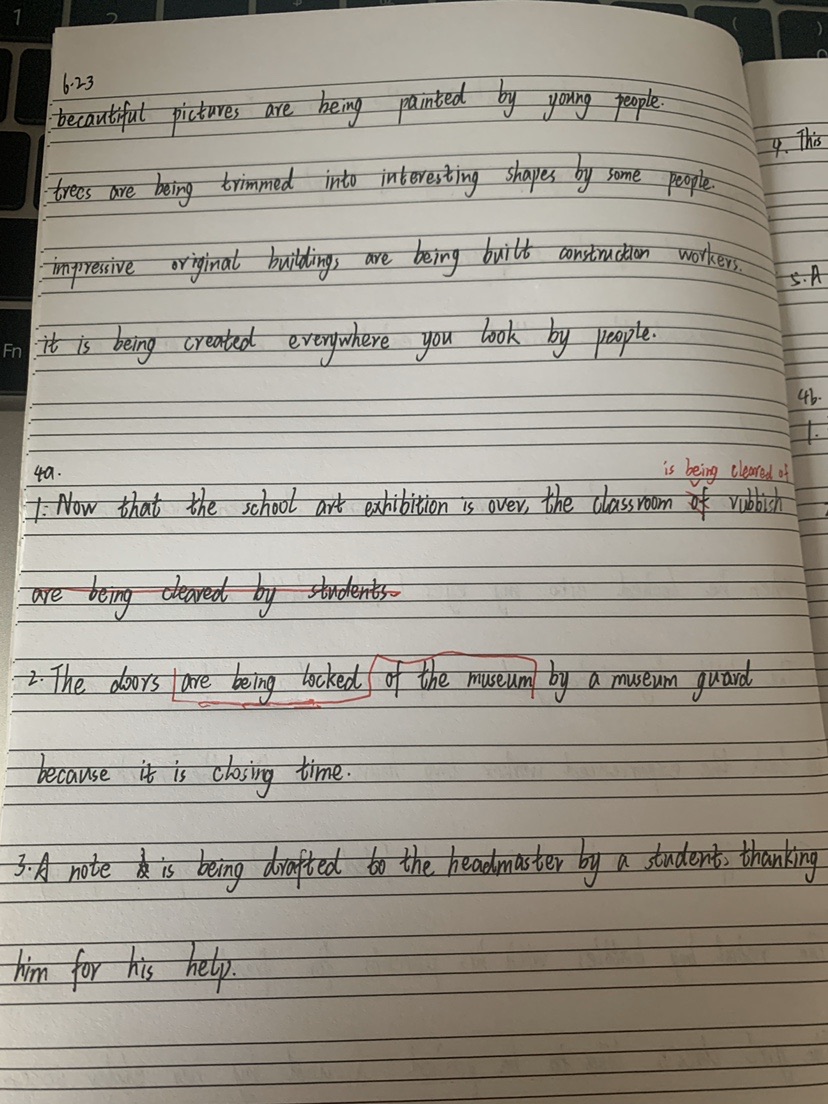 6.23
beautiful pictures are being painted by young people.
trees are being trimmed into interesting shapes by some people.
impressive original buildings are being built construction workers.
it is being created everywhere you look by people.
4a.
is being cleared of
1. Now that the school art exhibition is over, the classroom of rubbish
are being cleared by students.
2. The doors are being locked of the museum by a museum guard
because it is closing time.
3. A note is being drafted to the headmaster by a student, thanking
him for his help.
4. This
5. A
4b.
1.
Fn